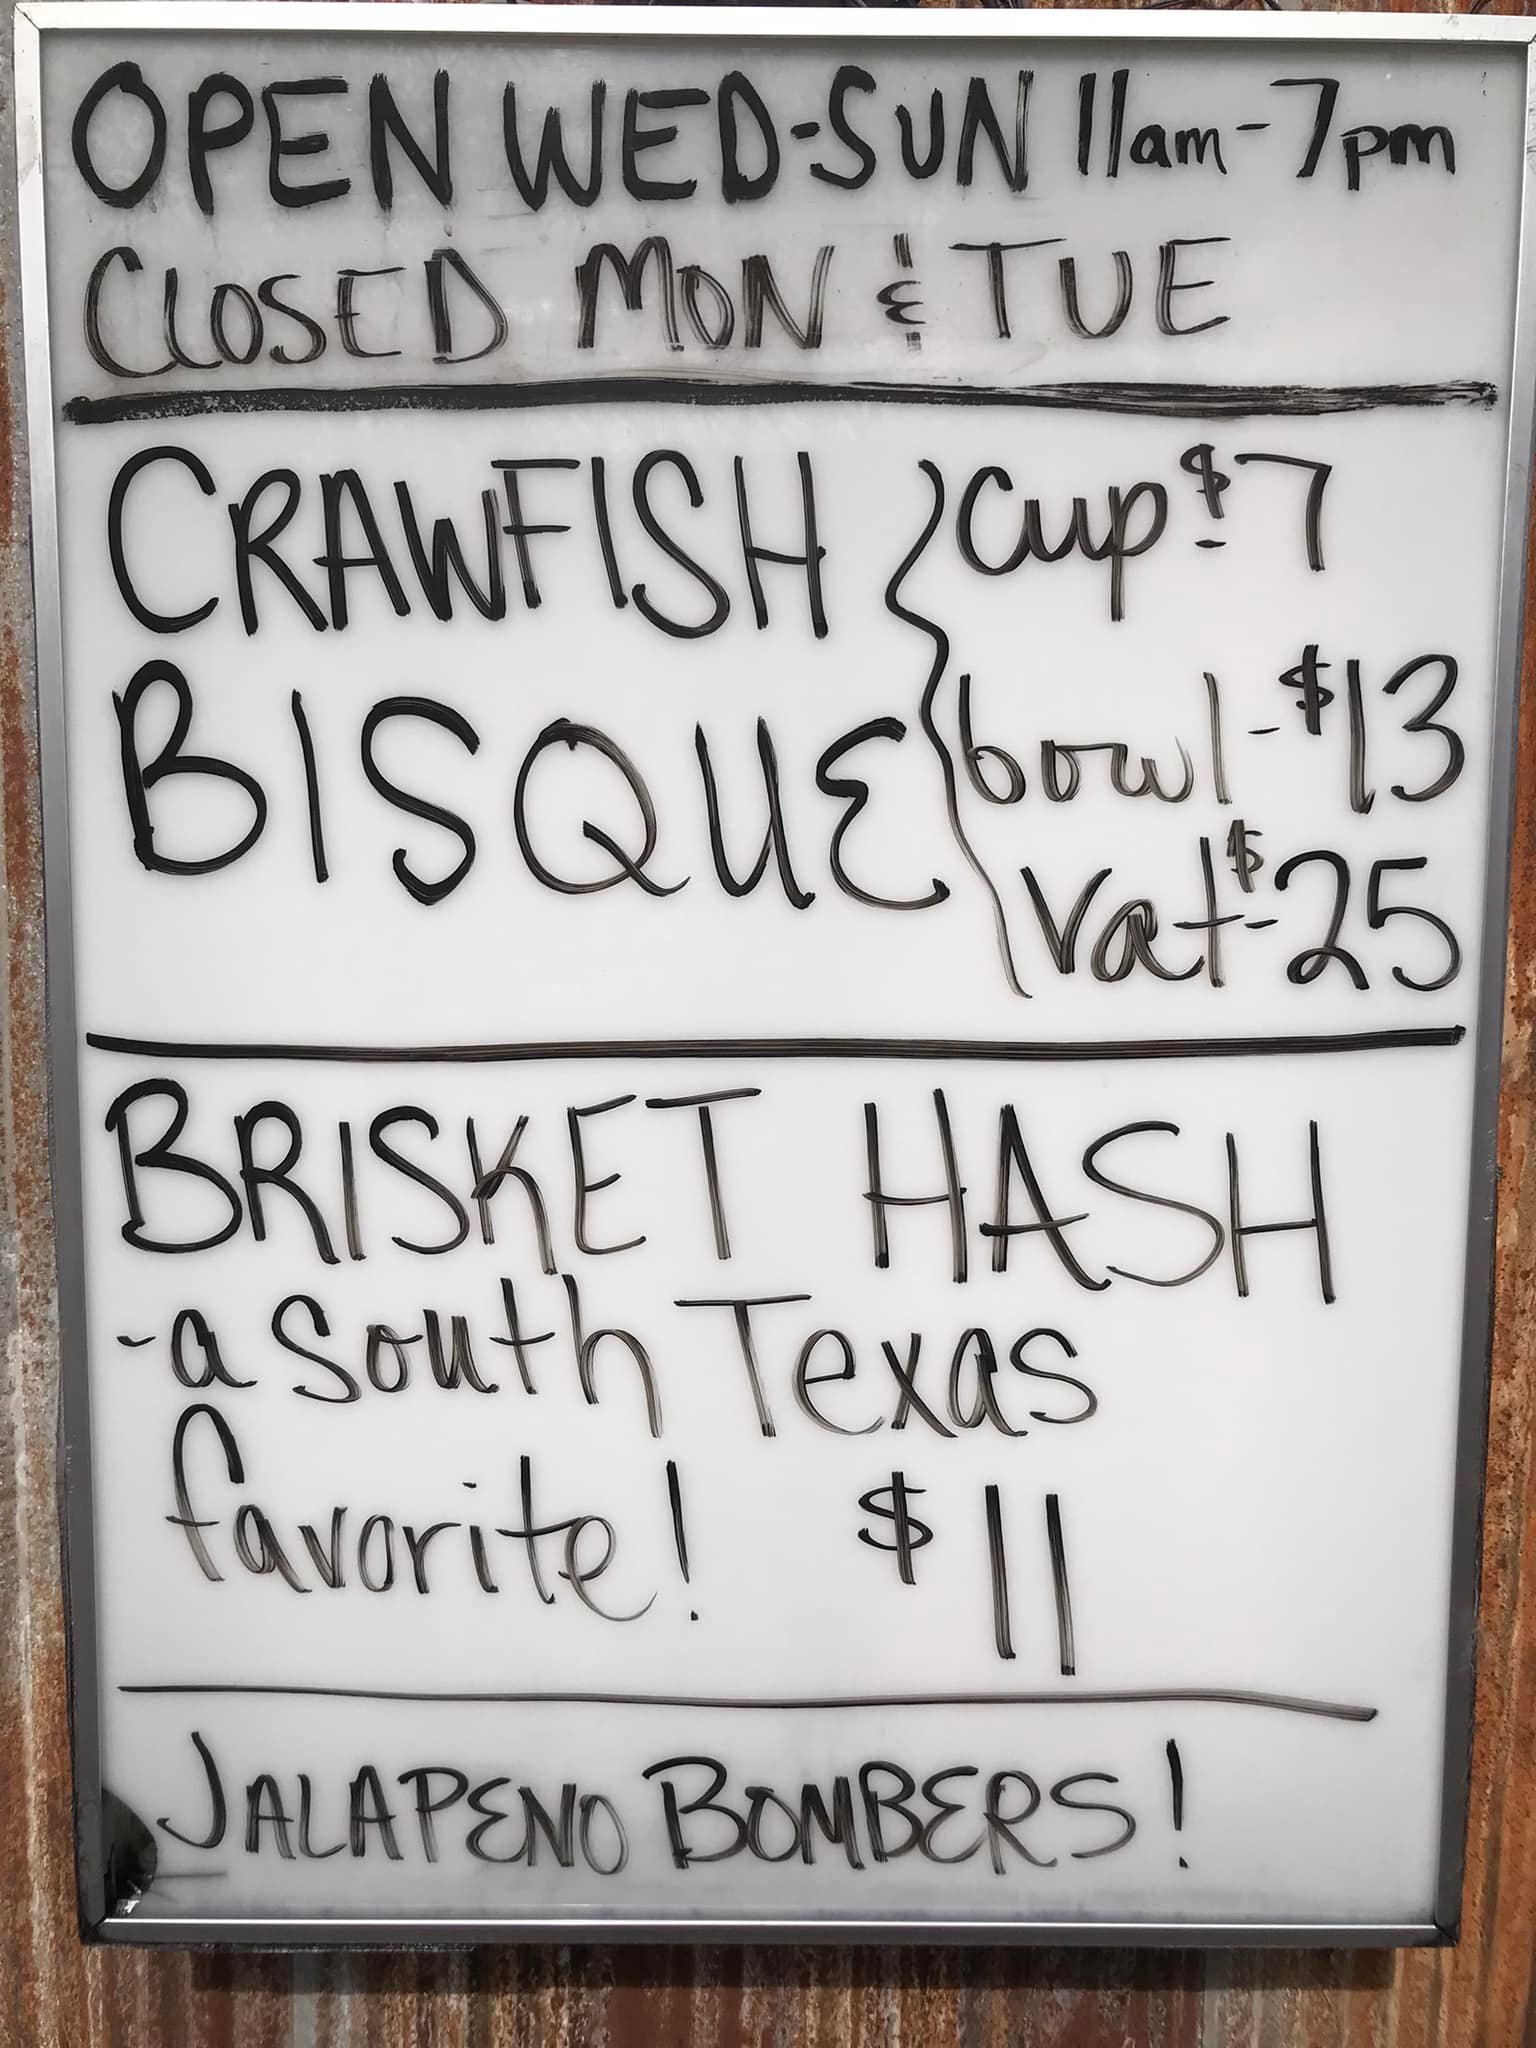 OPEN WED-SUN 11am-7pm
CLOSED MON & TUE
CRAWFISH
BISQUE
cup-$7
bowl-$13
vat-$25
BRISKET HASH
-a South Texas
favorite! $11
JALAPENO BOMBERS!